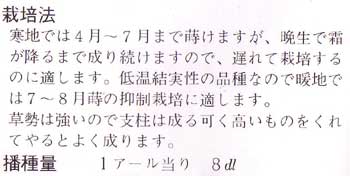 栽培法
寒地では4月〜7月まで蒔けますが、晩生で霜
が降るまで成り続けますので、遅れて栽培する
のに適します。低温結実性の品種なので暖地で
は7〜8月蒔の抑制栽培に適します。
草勢は強いので支柱は成る可く高いものをくれ
てやるとよく成ります。
播種量　1アール当り　8dl